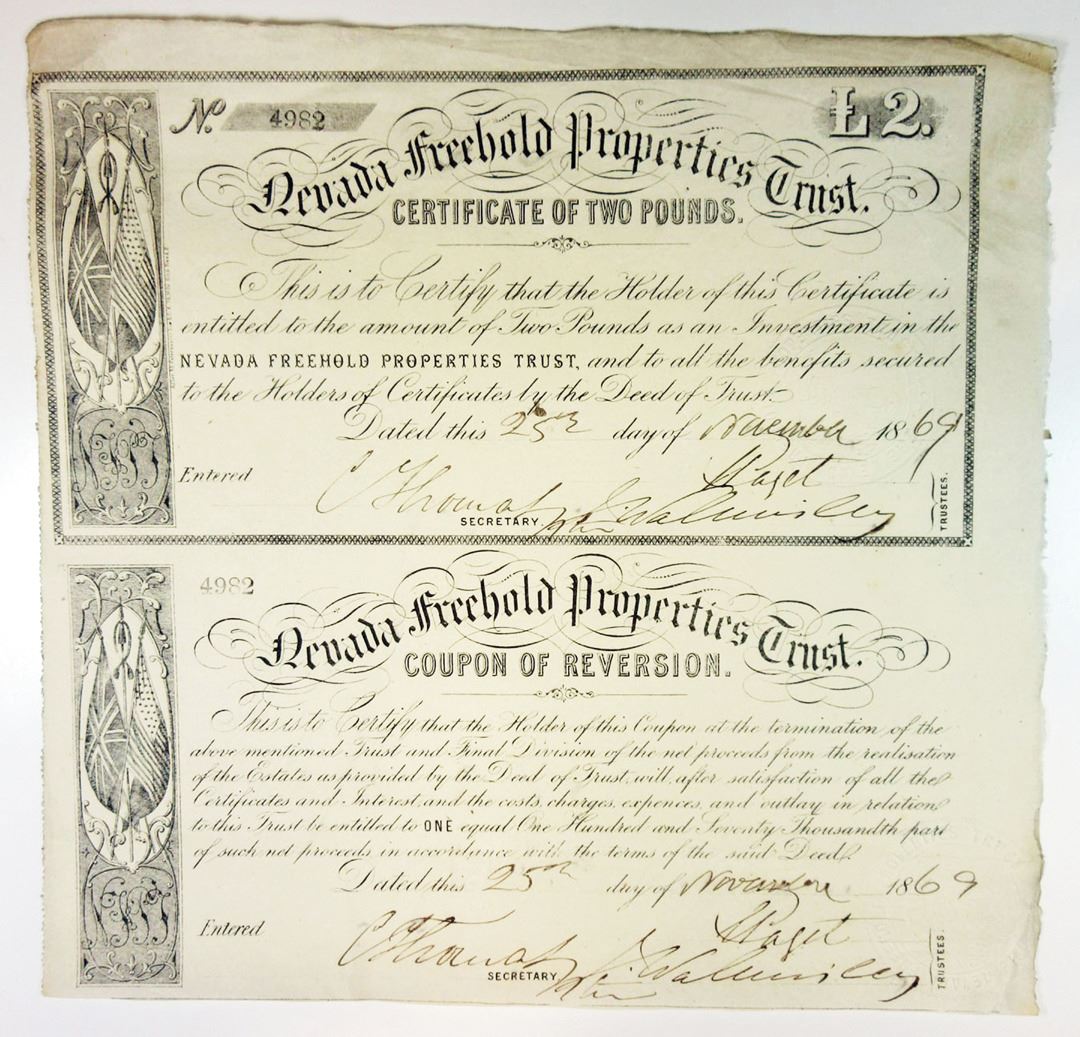 No. 4982
£2.
Nevada Freehold Properties Trust.
CERTIFICATE OF TWO POUNDS.
This is to Certify that the Holder of this Certificate is
entitled to the amount of Two Pounds as an Investment in the
NEVADA FREEHOLD PROPERTIES TRUST, and to all the benefits secured
to the Holders of Certificates by the Deed of Trust.
Dated this 25th day of November 1869
Entered
C Thomas
Paget
SECRETARY
J. Walmisley
TRUSTEES.
4982
Nevada Freehold Properties Trust.
COUPON OF REVERSION.
This is to Certify that the Holder of this Coupon at the termination of the
above mentioned Trust and Final Division of the net proceeds from the realisation
of the Estates as provided by the Deed of Trust, will, after satisfaction of all the
Certificates and Interest, and the costs, charges, expences, and outlay in relation
to this Trust be entitled to ONE equal One Hundred and Seventy Thousandth part
of such net proceeds in accordance with the terms of the said Deed.
Dated this 25th day of November 1869
Entered
C Thomas
Paget
SECRETARY
J. Walmisley
TRUSTEES.